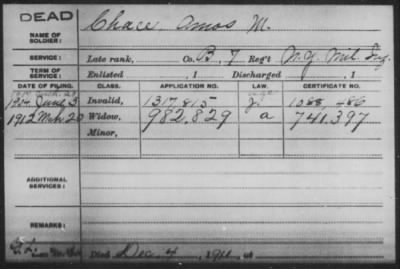 DEAD
NAME OF SOLDIER: Chace, Amos M.
SERVICE: Late rank, Co. B, 7 Reg't N.J. Mil. Inf.
TERM OF SERVICE: Enlisted , 1 Discharged , 1
DATE OF FILING. CLASS. APPLICATION NO. LAW. CERTIFICATE NO.
1904 June 3 Invalid, 1317,815 1088,486
1912 Mch 20 Widow, 982,829 a 741,397
Minor,
ADDITIONAL SERVICES:
REMARKS:
Died Dec 4, 1911, at